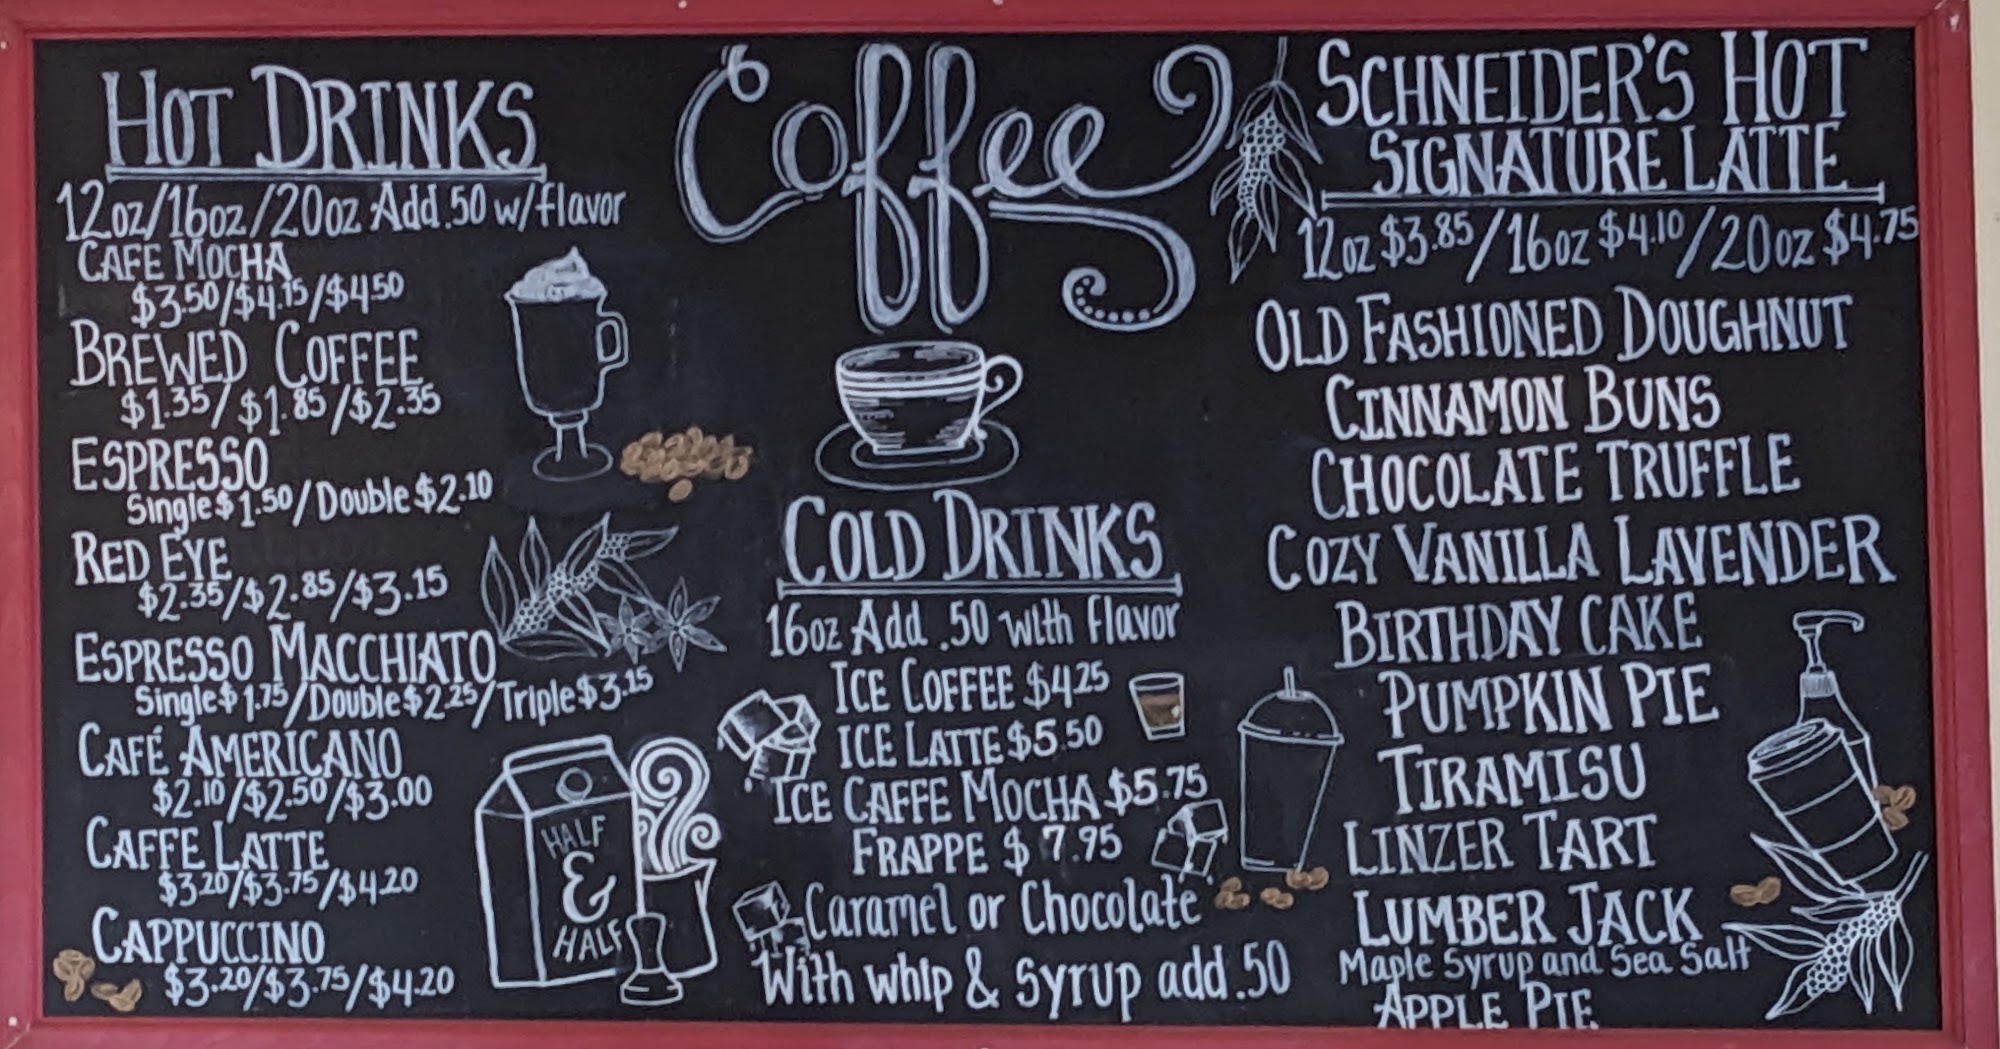 Coffee
HOT DRINKS
12oz/16oz/20oz Add .50 w/flavor
CAFE MOCHA
$3.50/$4.15/$4.50
BREWED COFFEE
$1.35/$1.85/$2.35
ESPRESSO
Single $1.50/Double $2.10
RED EYE
$2.35/$2.85/$3.15
ESPRESSO MACCHIATO
Single $1.75/Double $2.25/Triple $3.15
CAFÉ AMERICANO
$2.10/$2.50/$3.00
CAFFE LATTE
$3.20/$3.75/$4.20
CAPPUCCINO
$3.20/$3.75/$4.20
HALF
&
HALF
COLD DRINKS
16oz Add .50 with flavor
ICE COFFEE $4.25
ICE LATTE $5.50
ICE CAFFE MOCHA $5.75
FRAPPE $7.95
Caramel or Chocolate
With whip & syrup add .50
SCHNEIDER'S HOT
SIGNATURE LATTE
12oz $3.85/16oz $4.10/20oz $4.75
OLD FASHIONED DOUGHNUT
CINNAMON BUNS
CHOCOLATE TRUFFLE
COZY VANILLA LAVENDER
BIRTHDAY CAKE
PUMPKIN PIE
TIRAMISU
LINZER TART
LUMBER JACK
Maple Syrup and Sea Salt
APPLE PIE